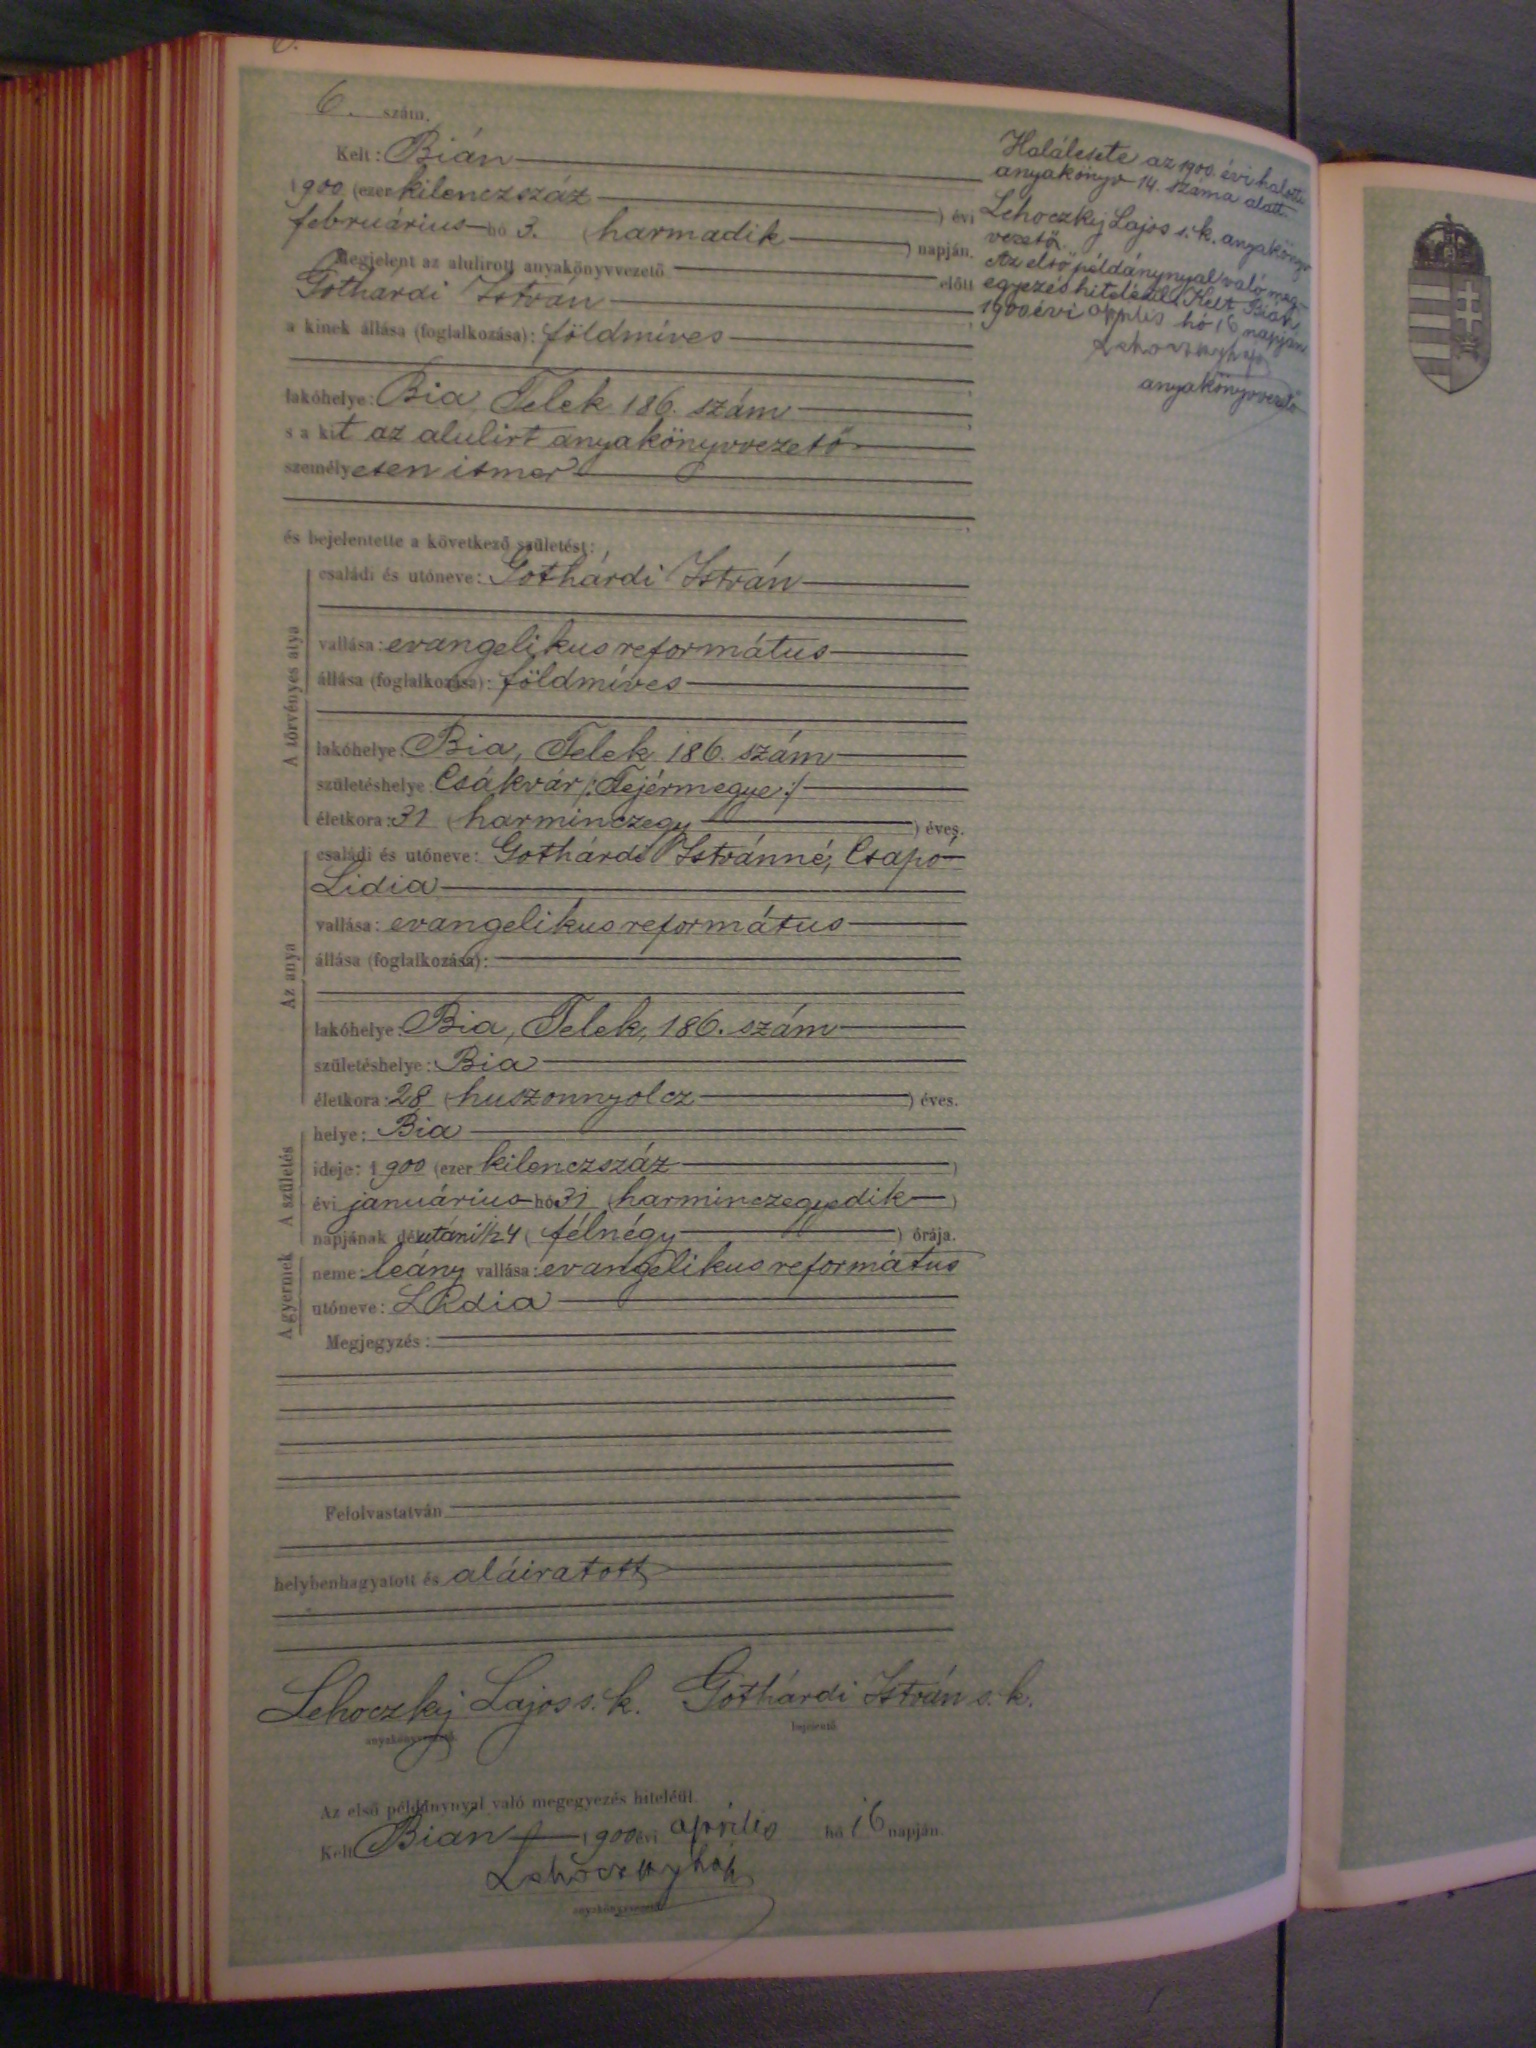 6.
6. szám.
Kelt: Bián
1900 (ezer kilenczszáz ) évi
februárius hó 3. (harmadik ) napján.
Megjelent az alulirott anyakönyvvezető előtt
Gothárdi István
a kinek állása (foglalkozása): földmíves
lakóhelye: Bia, Telek 186. szám
s a kit az alulirt anyakönyvvezető
személyesen ismer
és bejelentette a következő születést:
A törvényes atya
családi és utóneve: Gothárdi István
vallása: evangelikus református
állása (foglalkozása): földmíves
lakóhelye: Bia, Telek 186. szám
születéshelye: Csákvár /:Fejérmegye:/
életkora: 31 (harminczegy ) éves.
Az anya
családi és utóneve: Gothárdi Istvánné, Csapó
Lidia
vallása: evangelikus református
állása (foglalkozása):
lakóhelye: Bia, Telek, 186. szám
születéshelye: Bia
életkora: 28 (huszonnyolcz ) éves.
A születés
helye: Bia
ideje: 1900 (ezer kilenczszáz )
évi januárius hó 31 (harminczegyedik )
napjának délutáni 1/2 4 ( félnégy ) órája.
A gyermek
neme: leány vallása: evangelikus református
utóneve: Lidia
Megjegyzés:
Felolvastatván
helybenhagyatott és aláiratott
Lehoczky Lajos s. k. Gothárdi István s. k.
anyakönyvvezető bejelentő
Az első példánynyal való megegyezés hiteléül.
Kelt Bián 1900 évi április hó 16 napján.
Lehoczky Lajos
anyakönyvvezető
Halálesete az 1900. évi halotti
anyakönyv 14. száma alatt.
Lehoczky Lajos s. k. anyakönyv
vezető.
Az első példánynyal való meg-
egyezés hiteléül. Kelt Bián,
1900 évi április hó 16 napján
Lehoczky Lajos
anyakönyvvezető